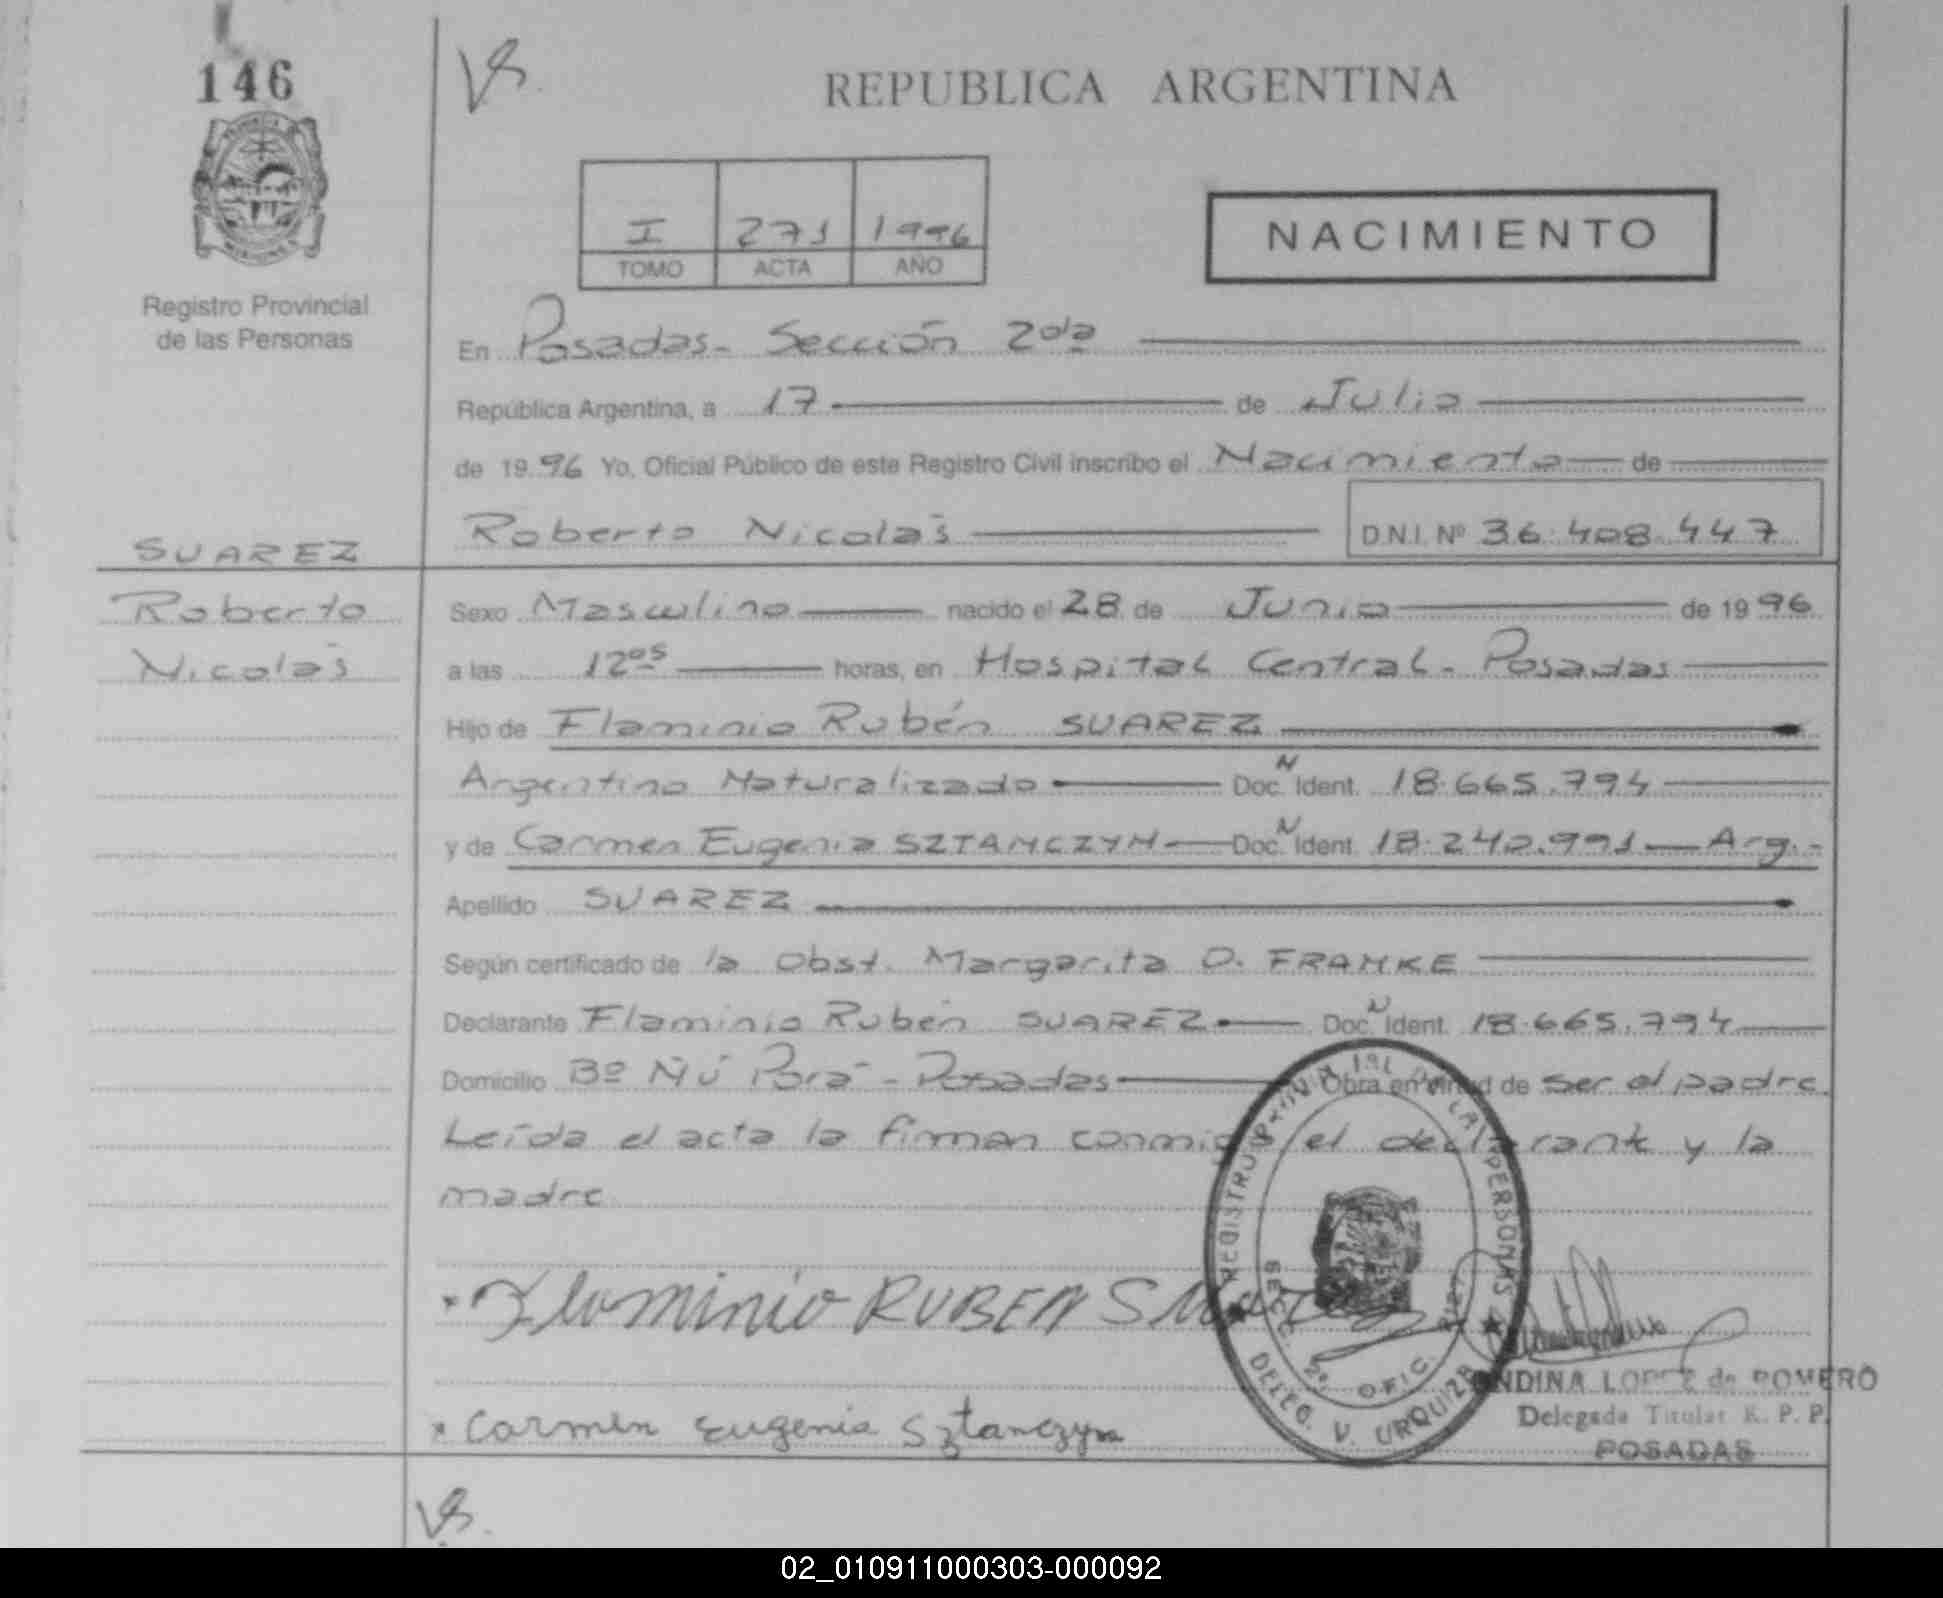 146
VB.
REPUBLICA ARGENTINA
I 271 1996
TOMO ACTA AÑO
NACIMIENTO
Registro Provincial
de las Personas
En Posadas- Sección 2da
República Argentina, a 17 de Julio
de 1996 Yo, Oficial Público de este Registro Civil inscribo el Nacimiento de
Roberto Nicolás D.N.I. Nº 36.408.447
SUAREZ
Roberto
Nicolás
Sexo Masculino nacido el 28 de Junio de 1996
a las 12os horas, en Hospital Central- Posadas
Hijo de Flaminio Rubén SUAREZ
Argentino Naturalizado Doc. N Ident. 18.665.794
y de Carmen Eugenia SZTANCZYN Doc. N Ident. 18.242.991 Arg.-
Apellido SUAREZ
Según certificado de la Obst. Margarita O. FRANKE
Declarante Flaminio Rubén SUAREZ Doc. N Ident. 18.665.794
Domicilio Bº Ñú Porá - Posadas Obra en virtud de ser el padre.
Leída el acta la firman conmigo el declarante y la
madre
Flaminio RUBEN SUAREZ
REGISTRO PROVINCIAL DE LAS PERSONAS
SECC. 2º OFIC.
DELEG. V. URQUIZA
LOPEZ de ROMERO
Delegada Titular R. P. P.
POSADAS
Carmen Eugenia Sztanczyn
VB.
02_010911000303-000092